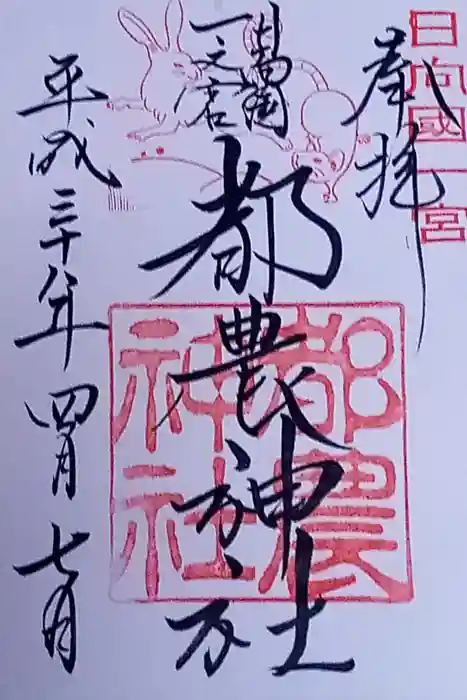 日向國一宮
奉拝
都農神社
都農神社
平成三十年四月七日